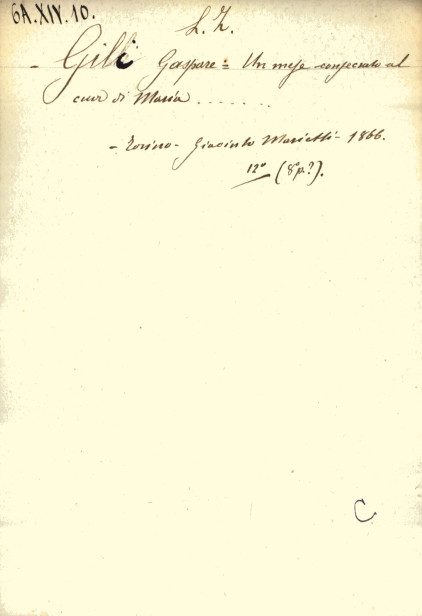 6A.XIV.10.
L.Z.
- Gilli Gaspare = Un mese consecrato al
cuor di Maria . . . . . .
- Torino - Giacinto Marietti - 1866.
12º (8º p.?).
C